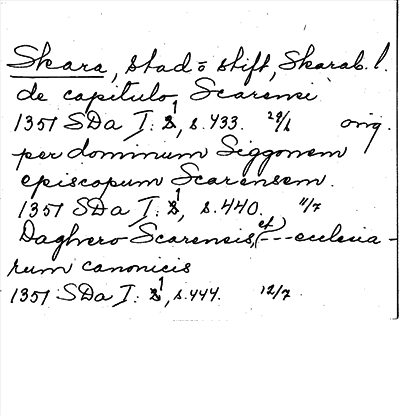 Skara, stad o stift, Skarab. l.
de capitulo Scarensi
1351 SDa I: 1, s. 433. 29/6 orig.
per dominum Siggonem
episcopum Scarensem.
1351 SDa I: 1, s. 440. 11/7
Daghero Scarensis (et) --- ecclesia-
rum canonicis
1351 SDa I: 1, s. 444. 12/7